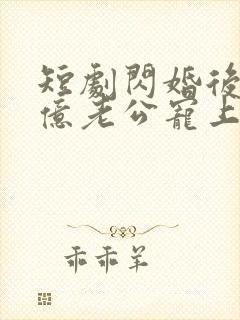 短劇閃婚後
億老公寵上
乖乖羊